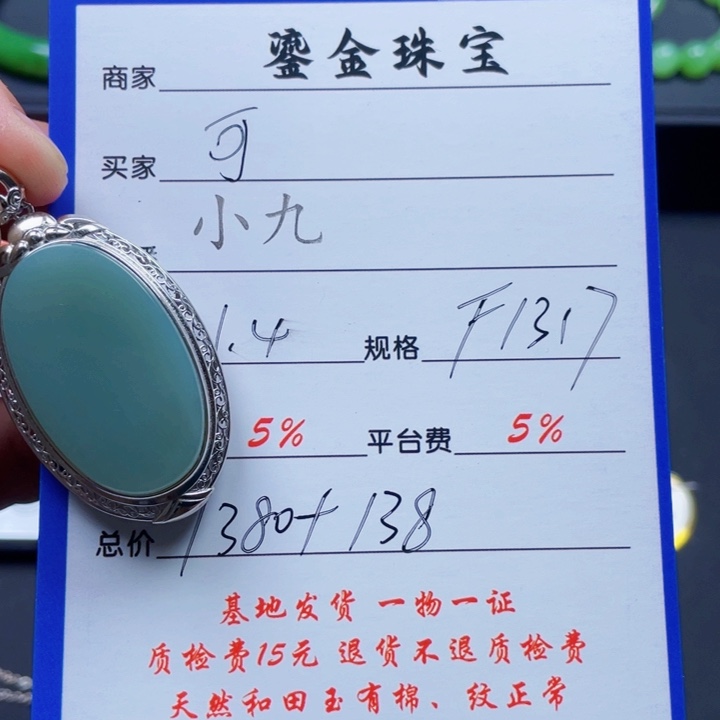 商家 鎏金珠宝
买家 可
小九
1.4 规格 F1317
5% 平台费 5%
总价 1380+138
基地发货 一物一证
质检费15元 退货不退质检费
天然和田玉有棉、纹正常